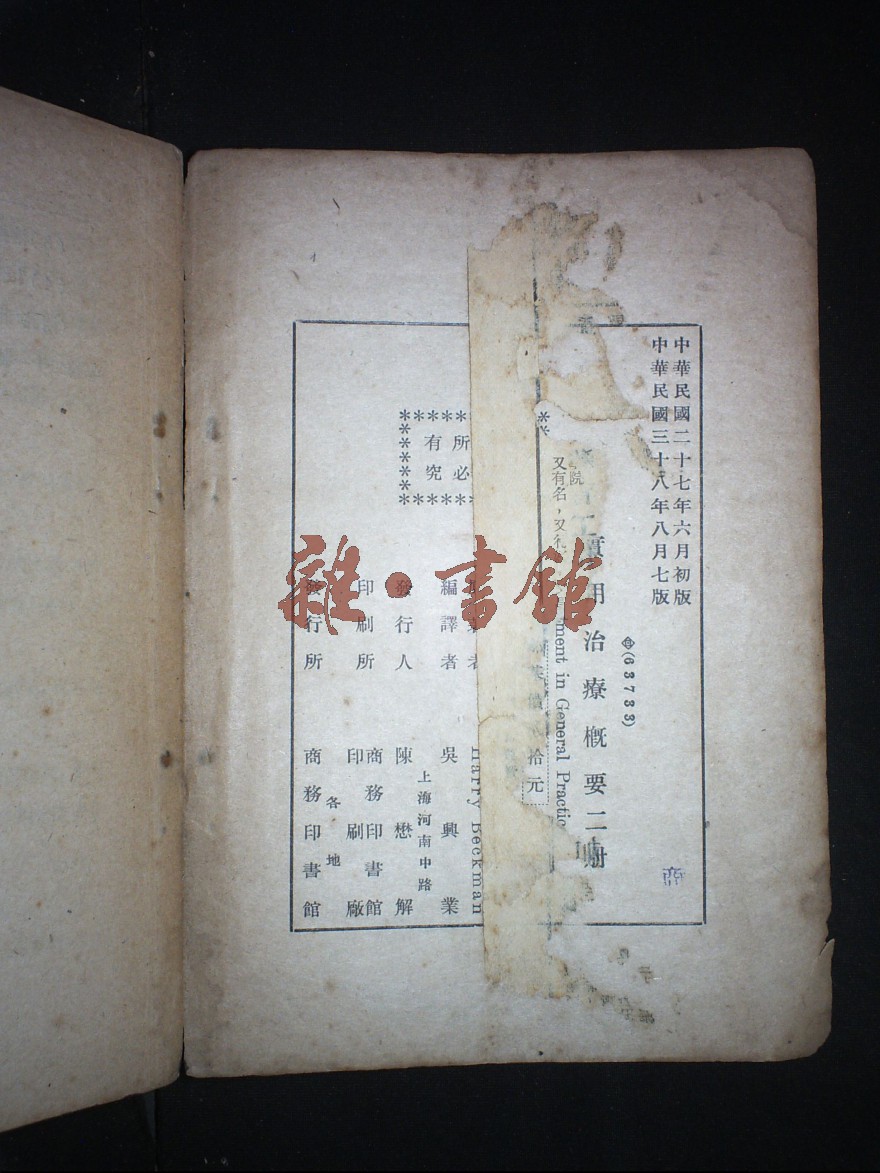 中華民國二十七年六月初版
中華民國三十八年八月七版
(63733)
實用治療概要二冊
ment in General Practic
院
又有名,又
拾元
所
必
有究
Harry Beckman
編譯者 吳興業
發行人 陳懋解
上海河南中路
印刷所 商務印書館
印刷廠
發行所 商務印書館
各地
雜·書館